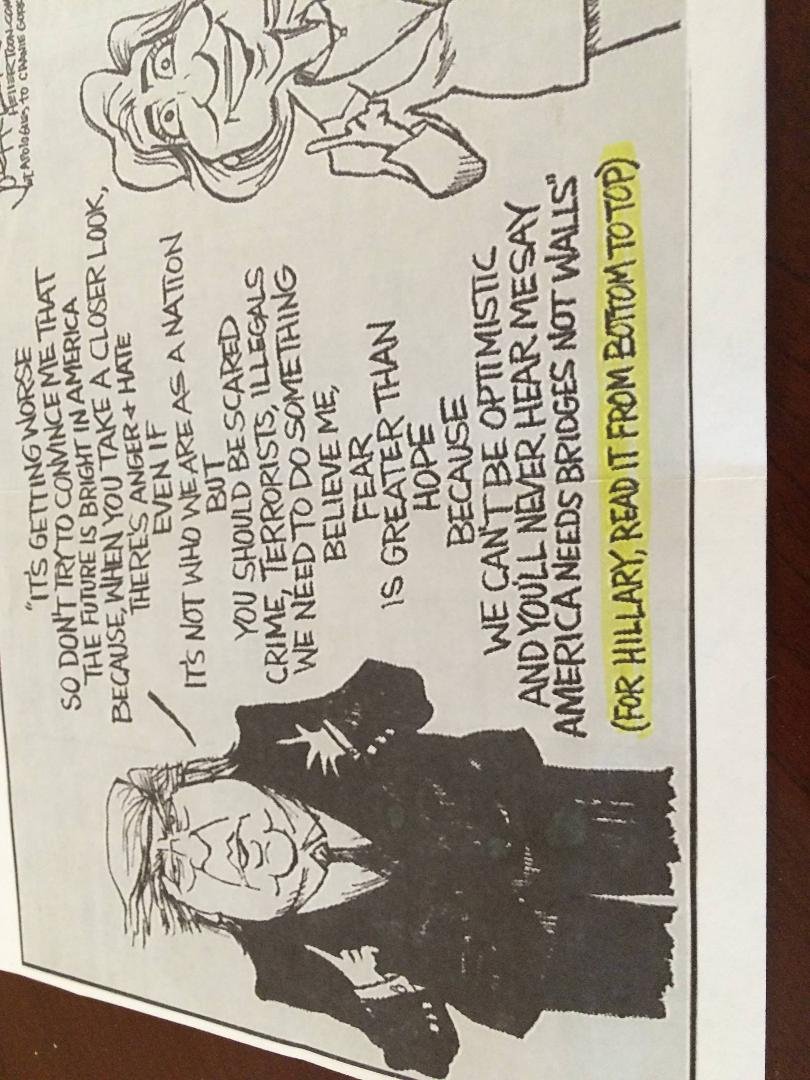 HELLERTOON.COM
W/ APOLOGIES TO
"IT'S GETTING WORSE
SO DON'T TRY TO CONVINCE ME THAT
THE FUTURE IS BRIGHT IN AMERICA
BECAUSE, WHEN YOU TAKE A CLOSER LOOK,
THERE'S ANGER + HATE
EVEN IF
IT'S NOT WHO WE ARE AS A NATION
BUT
YOU SHOULD BE SCARED
CRIME, TERRORISTS, ILLEGALS
WE NEED TO DO SOMETHING
BELIEVE ME,
FEAR
IS GREATER THAN
HOPE
BECAUSE
WE CAN'T BE OPTIMISTIC
AND YOU'LL NEVER HEAR ME SAY
AMERICA NEEDS BRIDGES NOT WALLS"
(FOR HILLARY, READ IT FROM BOTTOM TO TOP)